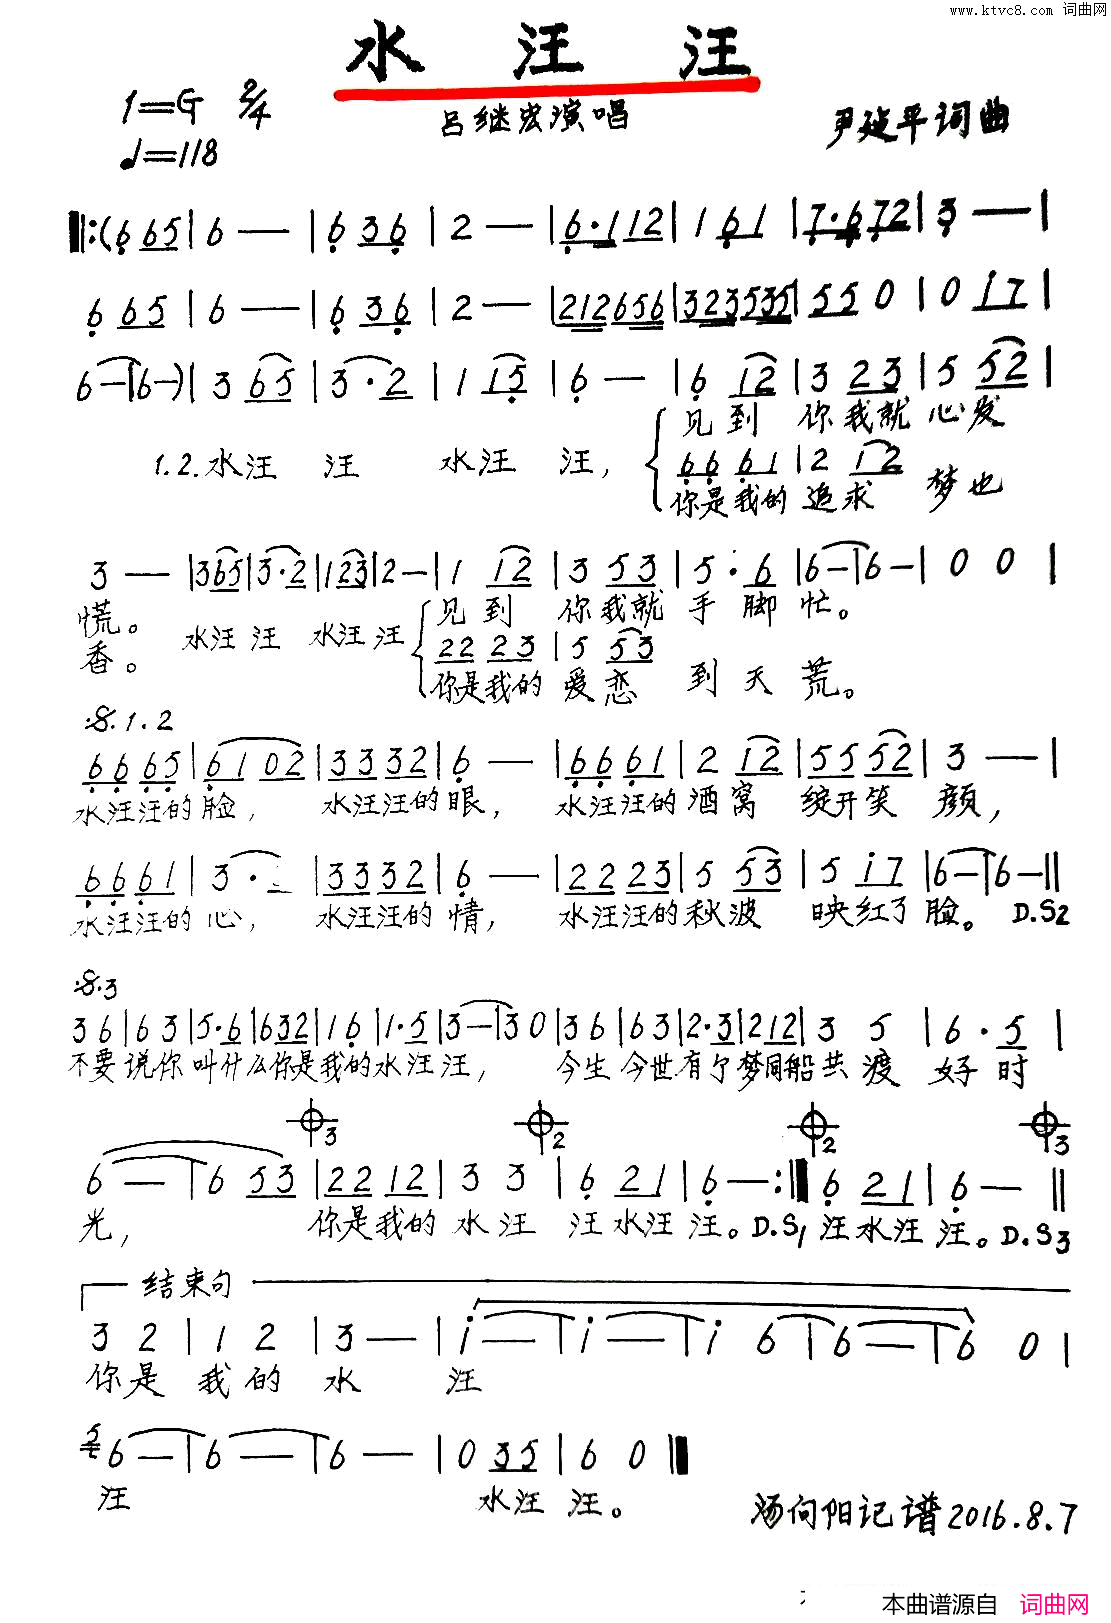 www.ktvc8.com 词曲网
水汪汪
1=G 2/4
吕继宏演唱
尹建平词曲
♩=118
‖:(6 665|6 —|6 36|2 —|6·112|1 61|7·672|3 —|
6 665|6 —|6 36|2 —|212656|323535|55 0|0 i7|
6 —|6 —)|3 65|3·2|1 15|6 —|6 12|3 23|5 52|
见到 你我就 心发
1.2.水汪 汪 水汪 汪,
66 61|2 12
你是我的 追求 梦也
3 —|365|3·2|123|2 —|1 12|3 53|5·6|6 —|6 —|0 0|
慌。 见到 你我就 手 脚 忙。
香。 水汪 汪 水汪 汪
22 23|5 53
你是我的 爱恋 到 天 荒。
:S.1.2
66 65|6102|3332|6 —|66 61|2 12|5552|3 —|
水汪汪的脸, 水汪汪的眼, 水汪汪的酒窝 绽开笑 颜,
66 61|3·2|3332|6 —|2223|5 53|5 i7|6 —|6 —‖
水汪汪的心, 水汪汪的情, 水汪汪的秋波 映红了 脸。 D.S2
:S.3
36|63|5·6|632|16|1·5|3 —|30|36|63|2·3|212|3 5|6·5|
不要说你叫什么你是我的水汪汪, 今生今世有尔梦同船共 渡 好 时
3 2 2 3
6 —|6 53|22 12|3 3|6 21|6 —:‖6 21|6 —‖
光, 你是我的 水 汪 汪水汪 汪。D.S1 汪水汪 汪。D.S3
结束句
3 2|1 2|3 —|i —|i —|i 6|6 —|6 0|
你是 我的 水 汪
6 —|6 —|6 —|0 35|6 0‖
汪 水汪 汪。
汤向阳记谱2016.8.7
本曲谱源自 词曲网